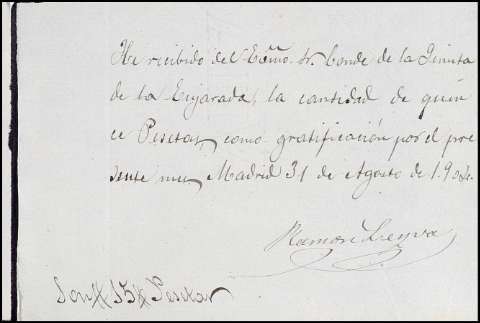 He recibido del Exmo. Sr. Conde de la Quinta
de la Enjarada, la cantidad de quin
ce Pesetas como gratificación por el pre
sente mes Madrid 31 de Agosto de 1.904.
Ramón Leyva
Son # 15 # Pesetas